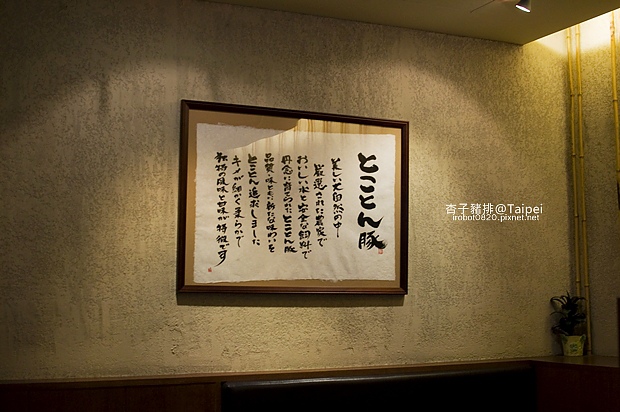 とことん豚
美しい大自然の中
厳選された農家で
おいしい水と安全な飼料で
丹念に育てられたとことん豚
品質・味ともに新たな味わいを
とことん追求しました
キメが細かく柔らかで
独特の風味と甘味が特徴です
杏子豬排@Taipei
irobot0820.pixnet.net